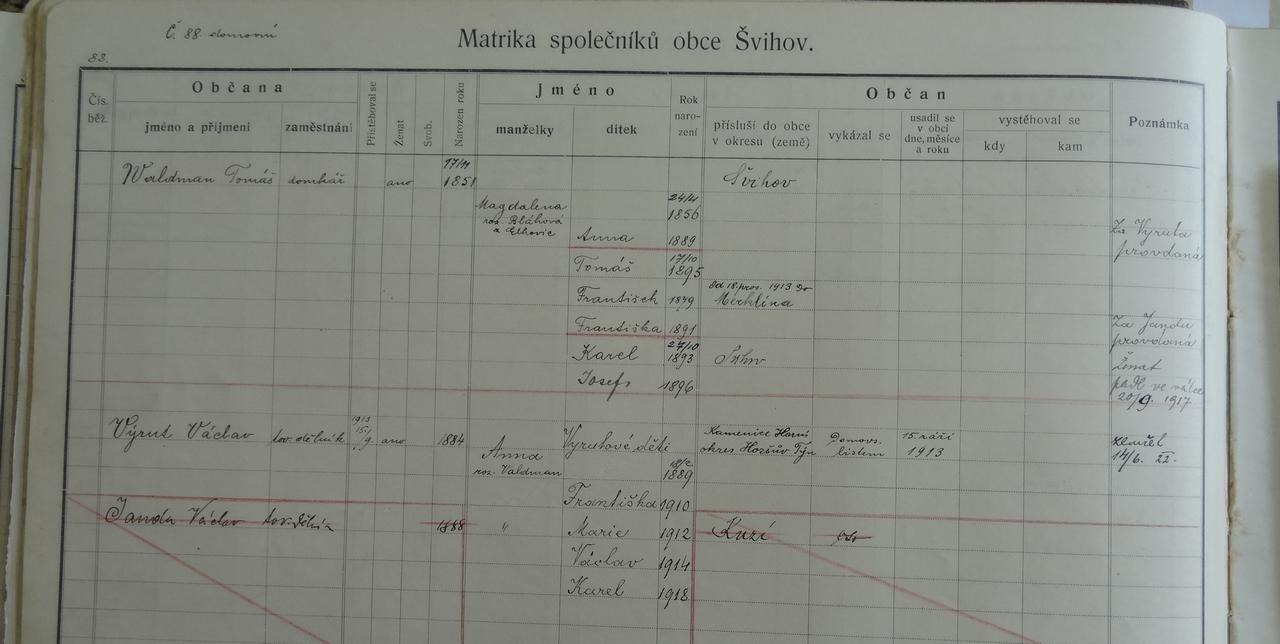 Č. 88. domovní
Matrika společníků obce Švihov.
88.
Čís. běž.
Občana
jméno a příjmení
zaměstnání
Přistěhoval se
Ženat
Svob.
Narozen roku
Jméno
manželky
dítek
Rok naro- zení
Občan
přísluší do obce v okresu (země)
vykázal se
usadil se v obci dne, měsíce a roku
vystěhoval se
kdy
kam
Poznámka
Waldman Tomáš domkář ano 17/11 1851 Švihov
Magdalena 24/4 1856
roz. Bláhová
z Elhovic
Anna 1889 Za Vyruta provdaná
Tomáš 17/10 1895
František 1879 Od 18. pros. 1913 do Merklína
Františka 1891 Za Jandu provdaná
Karel 27/10 1893 Švhv Ženat
Josef 1896 padl ve válce 20/9. 1917
Výrut Václav tov. dělník 1913 15/9. ano 1884 Vyrutové děti Kamenice Horní okres Horšův Týn Domovs. listem 15. září 1913 zemřel 14/6. 22.
Anna 18/2 1889
roz. Valdman
Františka 1910
Janda Václav tov. dělník 1888 " Marie 1912
Václav 1914
Karel 1918